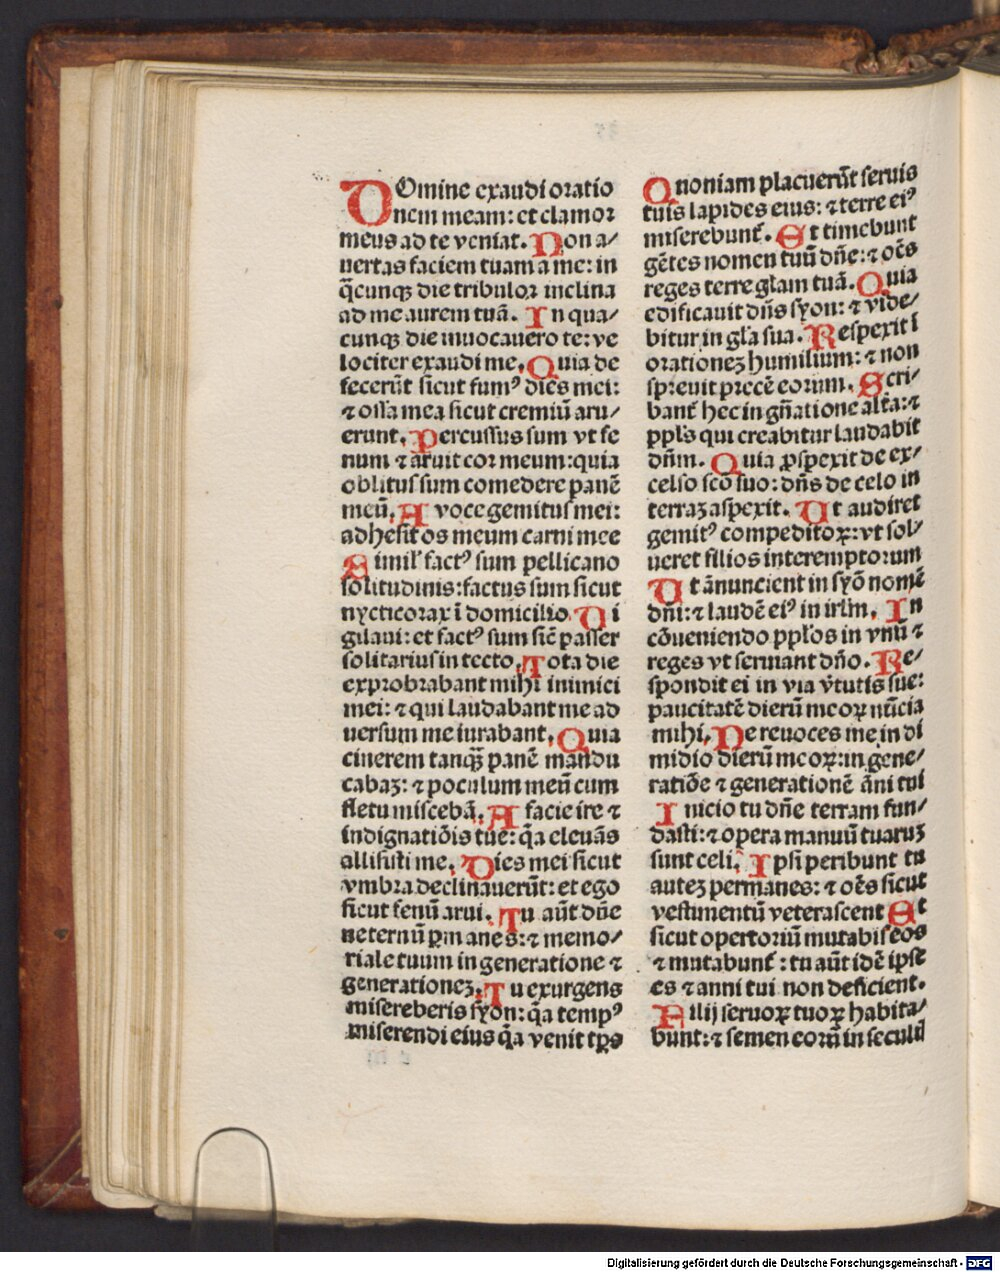 DOmine exaudi oratio
nem meam: et clamor
meus ad te veniat. Non a/
uertas faciem tuam a me: in
q̃cunqꝫ die tribulor inclina
ad me aurem tuã. In qua/
cunqꝫ die inuocauero te: ve
lociter exaudi me. Quia de
fecerũt sicut fumꝰ dies mei:
⁊ ossa mea sicut cremiũ aru/
erunt. Percussus sum vt fe
num ⁊ aruit cor meum: quia
oblitus sum comedere panẽ
meũ. A voce gemitus mei:
adhesit os meum carni mee
Simil' factꝰ sum pellicano
solitudinis: factus sum sicut
nycticorax ĩ domicilio. Ui
gilaui: et factꝰ sum sic̃ passer
solitarius in tecto. Tota die
exprobrabant mihi inimici
mei: ⁊ qui laudabant me ad
uersum me iurabant. Quia
cinerem tanqꝫ̃ panẽ mandu
cabaꝫ: ⁊ poculum meũ cum
fletu miscebã. A facie ire ⁊
indignatiõis tue: q̃a eleuãs
allisisti me. Dies mei sicut
vmbra declinauerũt: et ego
sicut fenũ arui. Tu aũt dñe
ineternũ ꝑmanes: ⁊ memo/
riale tuum in generatione ⁊
generationeꝫ. Tu exurgens
misereberis syon: q̃a tempꝰ
miserendi eius q̃a venit tp̃s
Quoniam placuerũt seruis
tuis lapides eius: ⁊ terre eiꝰ
miserebunt̃. Et timebunt
gẽtes nomen tuũ dñe: ⁊ oẽs
reges terre gl̃am tuã. Quia
edificauit dñs syon: ⁊ vide/
bitur in gl̃a sua. Respexit ĩ
orationeꝫ humilium: ⁊ non
spreuit precẽ eorum. Scri/
bant̃ hec in gñatione alt̃a: ⁊
ppl̃s qui creabitur laudabit
dñm. Quia ꝓspexit de ex/
celso scõ suo: dñs de celo in
terraꝫ aspexit. Ut audiret
gemitꝰ compeditoꝝ: vt sol/
ueret filios interemptorum
Ut ãnuncient in syõ nomẽ
dñi: ⁊ laudẽ eiꝰ in irl̃m. In
cõueniendo ppl̃os in vnũ ⁊
reges vt seruiant dño. Re/
spondit ei in via v̾tutis sue:
paucitatẽ dierũ meoꝝ nũcia
mihi. Ne reuoces me in di
midio dierũ meoꝝ: in gene/
ratiõe ⁊ generationẽ ãni tui
Inicio tu dñe terram fun/
dasti: ⁊ opera manuũ tuaruꝫ
sunt celi. Ipsi peribunt tu
auteꝫ permanes: ⁊ oẽs sicut
vestimentũ veterascent Et
sicut opertoriũ mutabis eos
⁊ mutabunt̃: tu aũt idẽ ipse
es ⁊ anni tui non deficient.
Filij seruoꝝ tuoꝝ habita/
bunt: ⁊ semen eorũ in seculũ
Digitalisierung gefördert durch die Deutsche Forschungsgemeinschaft - DFG